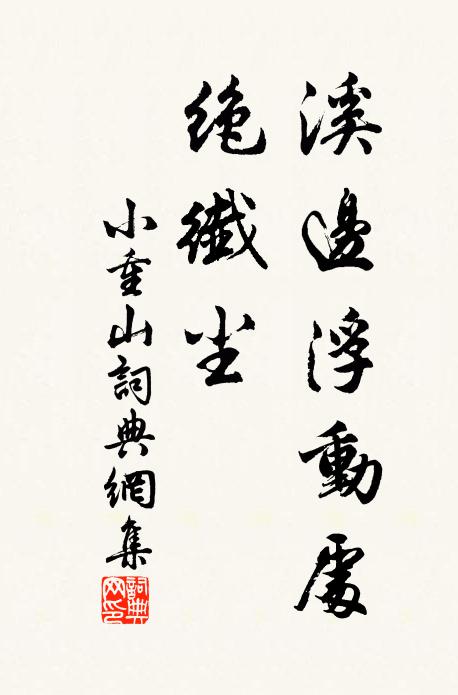 溪邊浮動處
絶纖尘
小重山詞典網集
詞典网印